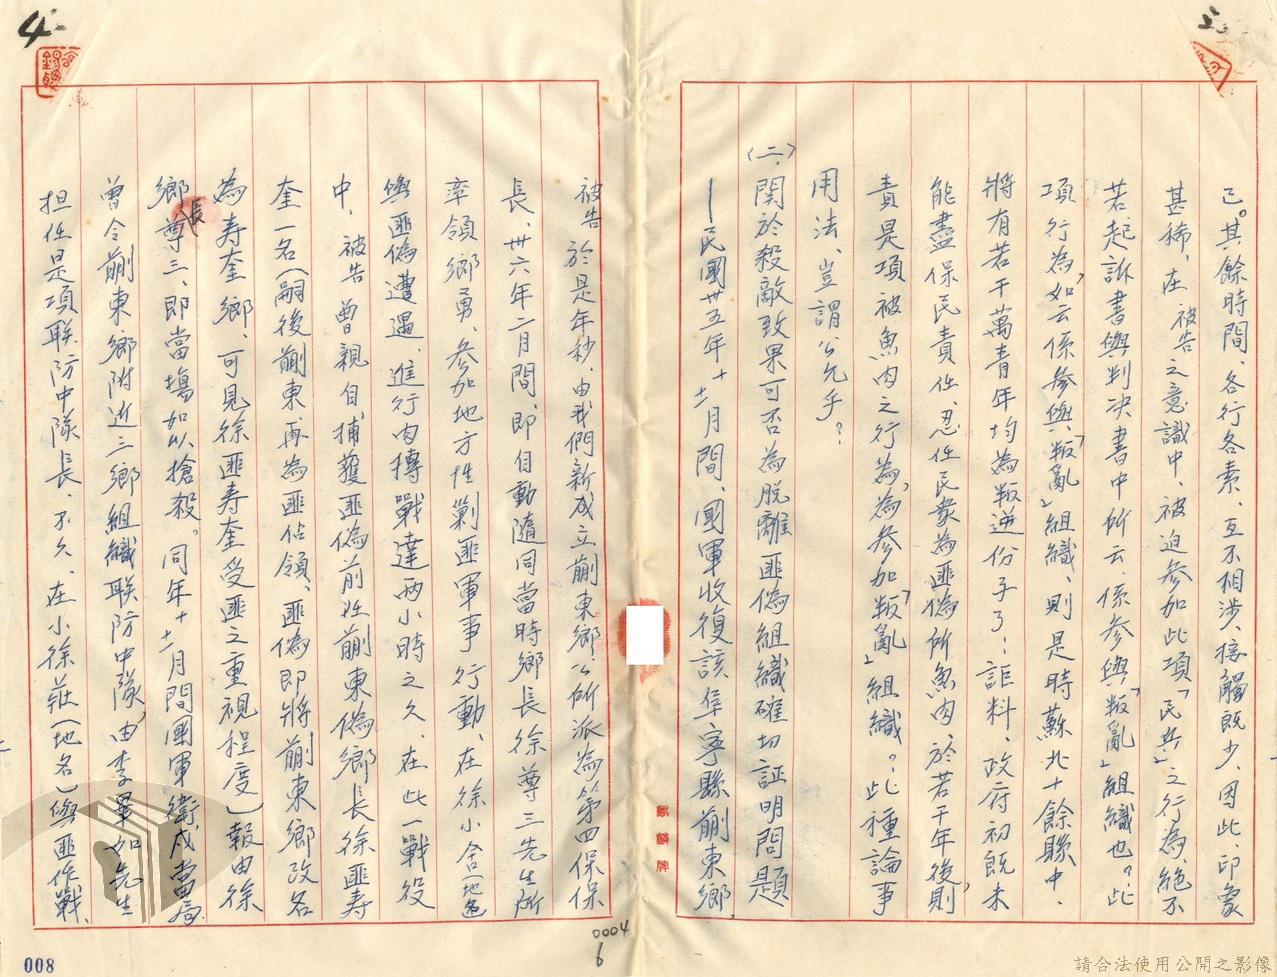 5
已。其餘時間、各行各素、互不相涉、接觸既少、因此、印象
甚稀、在被告之意識中、被迫參加此項「民兵」之行為、絕不
若起訴書與判決書中所云、係參與「叛亂」組織也。此
項行為、如云係參與「叛亂」組織、則是時蘇北十餘縣中、
將有若干萬青年均為叛逆份子了!詎料、政府初既未
能盡保民責任、忍任民眾為匪偽所魚肉、於若干年後、則
責是項被魚肉之行為、為參加「叛亂」組織。此種論事
用法、豈謂公允乎?
(二)、關於殺敵致果可否為脫離匪偽組織確切証明問題
—民國卅五年十、十一月間、國軍收復該阜寧縣蒯東鄉、
4
被告於是年秒、由我們新成立蒯東鄉公所派為第四保保
長、卅六年二月間、即自動隨同當時鄉長徐尊三先生所
率領鄉勇、參加地方性剿匪軍事行動、在徐小舍(地名)
與匪偽遭遇、進行肉搏戰達兩小時之久、在此一戰役
中、被告曾親自捕獲匪偽前任蒯東偽鄉長徐匪壽
奎一名(嗣後蒯東再為匪佔領、匪偽即將蒯東鄉改名
為壽奎鄉、可見徐匪壽奎受匪之重視程度)報由徐
鄉長尊三、即當場加以槍殺。同年十、十一月間國軍衛戍當局
曾令蒯東鄉附近三鄉組織联防中隊、由李畢如先生
担任是項联防中隊長、不久、在小徐莊(地名)與匪作戰、
麒麟牌
0004
6
008
請合法使用公開之影像